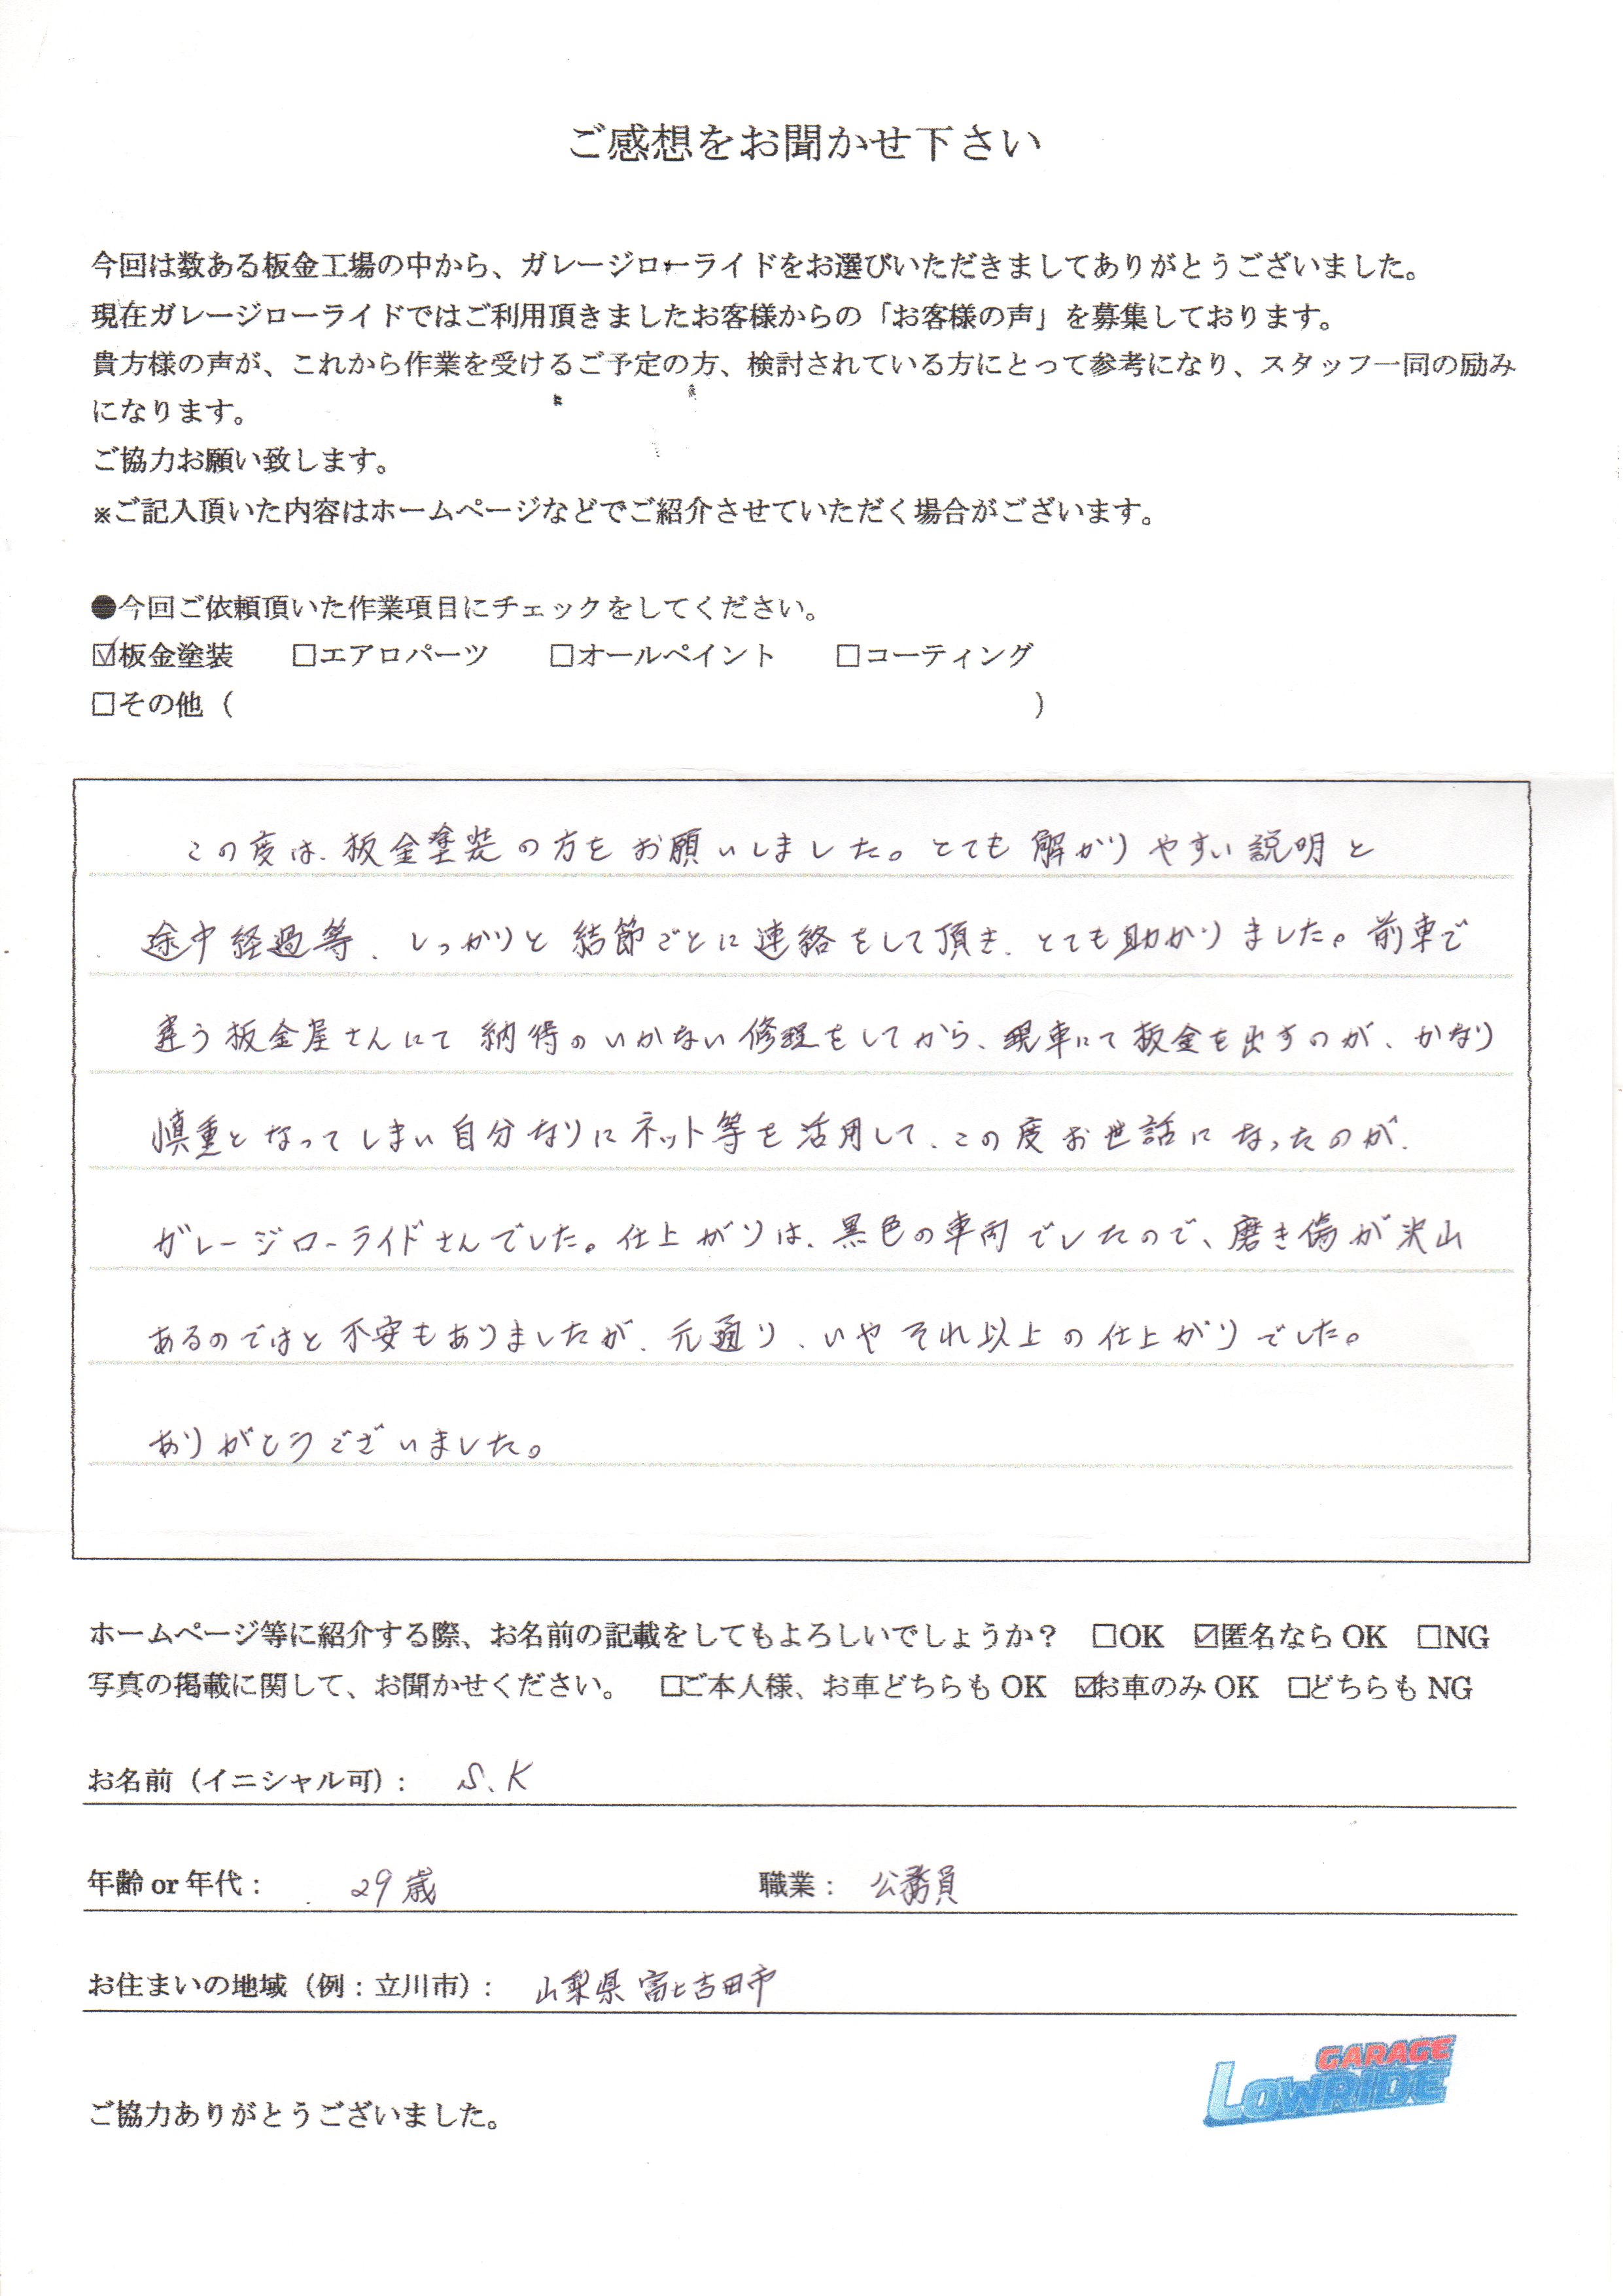 ご感想をお聞かせ下さい
今回は数ある板金工場の中から、ガレージローライドをお選びいただきましてありがとうございました。
現在ガレージローライドではご利用頂きましたお客様からの「お客様の声」を募集しております。
貴方様の声が、これから作業を受けるご予定の方、検討されている方にとって参考になり、スタッフ一同の励み
になります。
ご協力お願い致します。
※ご記入頂いた内容はホームページなどでご紹介させていただく場合がございます。
●今回ご依頼頂いた作業項目にチェックをしてください。
☑板金塗装 □エアロパーツ □オールペイント □コーティング
□その他（ ）
この度は、板金塗装の方をお願いしました。とても解かりやすい説明と
途中経過等、しっかりと結節ごとに連絡をして頂き、とても助かりました。前車で
違う板金屋さんにて納得のいかない修理をしてから、現車にて板金を出すのが、かなり
慎重となってしまい自分なりにネット等を活用して、この度お世話になったのが、
ガレージローライドさんでした。仕上がりは、黒色の車両でしたので、磨き傷が沢山
あるのではと不安もありましたが、元通り、いやそれ以上の仕上がりでした。
ありがとうございました。
ホームページ等に紹介する際、お名前の記載をしてもよろしいでしょうか？ □OK ☑匿名なら OK □NG
写真の掲載に関して、お聞かせください。 □ご本人様、お車どちらも OK ☑お車のみ OK □どちらも NG
お名前（イニシャル可）： S.K
年齢 or 年代： 29歳 職業： 公務員
お住まいの地域（例：立川市）： 山梨県富士吉田市
GARAGE
LOWRIDE
ご協力ありがとうございました。